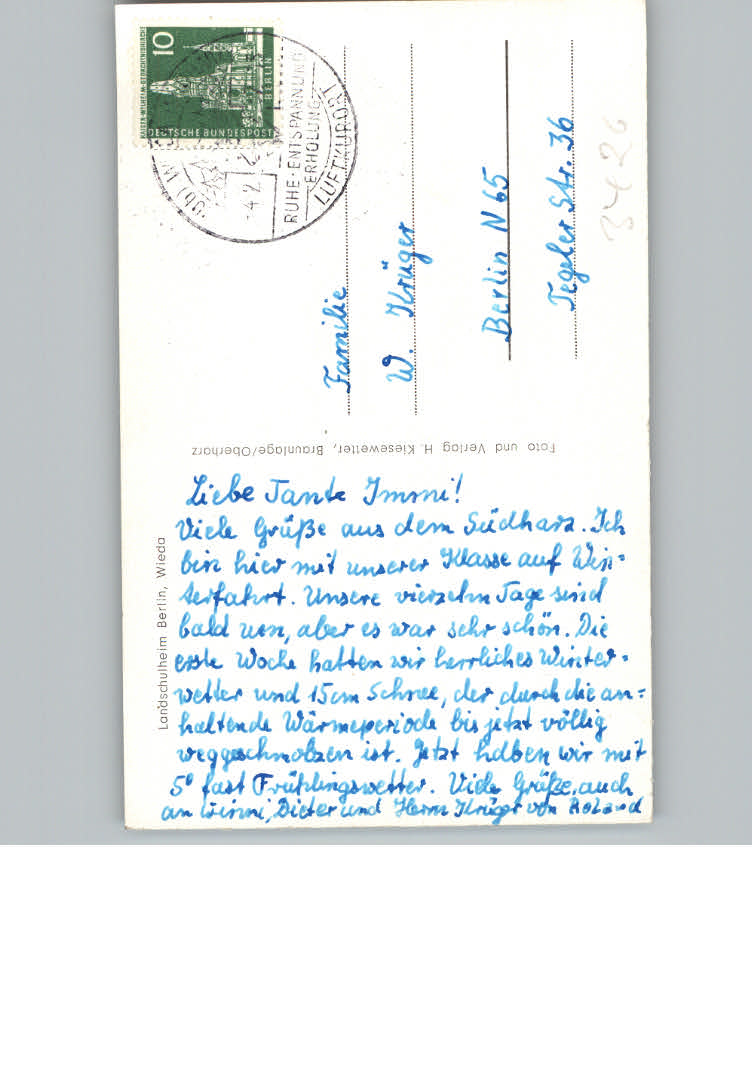 Liebe Tante Immi!
Viele Grüße aus dem Südharz. Ich
bin hier mit unserer Klasse auf Win=
terfahrt. Unsere vierzehn Tage sind
bald um, aber es war sehr schön. Die
erste Woche hatten wir herrliches Winter=
wetter und 15cm Schnee, der durch die an=
haltende Wärmeperiode bis jetzt völlig
weggeschmolzen ist. Jetzt haben wir mit
5° fast Frühlingswetter. Viele Grüße, auch
an Winni, Dieter und Herrn Krüger von Roland
Landschulheim Berlin, Wieda
Foto und Verlag H. Kiesewetter, Braunlage/Oberharz
Familie
W. Krüger
Berlin N 65
Tegeler Str. 36
3426
10
KAISER-WILHELM-GEDÄCHTNISKIRCHE
BERLIN
DEUTSCHE BUNDESPOST
RUHE·ENTSPANNUNG
ERHOLUNG
LUFTKURORT
-4.2.